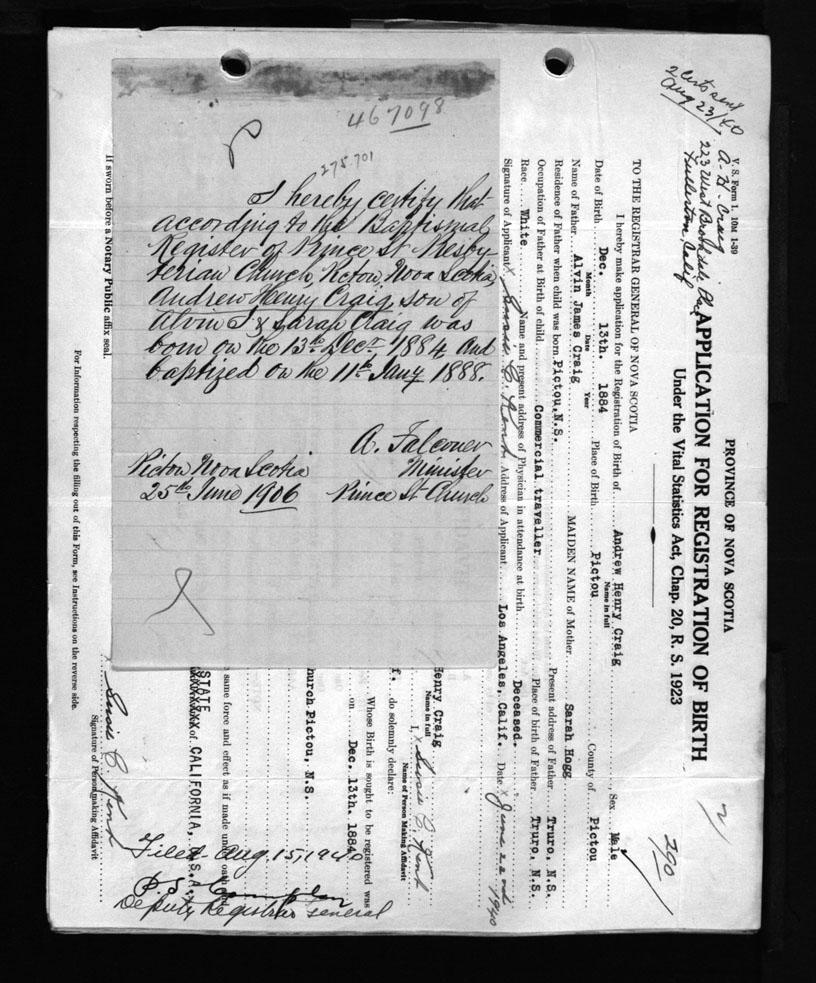 467098
275.701
I hereby certify that
according to the Baptismal
Register of Prince St Presby-
terian Church Pictou, Nova Scotia,
Andrew Henry Craig, son of
Alvin J & Sarah Craig was
born on the 13th Decr 1884 and
baptized on the 11th Jany 1888.
A. Falconer
Minister
Prince St Church
Pictou Nova Scotia
25th June 1906
2
290
PROVINCE OF NOVA SCOTIA
APPLICATION FOR REGISTRATION OF BIRTH
Under the Vital Statistics Act, Chap. 20, R. S. 1923
V. S. Form 1. 10M 1-39
Aug 23/40
A. H. Craig
223 West
Fullerton, Calif
TO THE REGISTRAR GENERAL OF NOVA SCOTIA
I hereby make application for the Registration of Birth of Andrew Henry Craig Sex Male
Name in full
Date of Birth Dec. 13th. 1884 Place of Birth Pictou County of Pictou
Month Date Year
Name of Father Alvin James Craig MAIDEN NAME of Mother Sarah Hogg
Residence of Father when child was born Pictou, N.S. Present address of Father Truro, N.S.
Occupation of Father at Birth of child Commercial traveller Place of birth of Father Truro, N.S.
Race White Name and present address of Physician in attendance at birth Deceased.
Signature of Applicant X Susie C. Kent Address of Applicant Los Angeles, Calif. Date X June 22nd 1940
I, X Susie C. Kent
Name of Person Making Affidavit
do solemnly declare:
Henry Craig
Name in full
Whose Birth is sought to be registered was
on Dec. 13th. 1884
hurch Pictou, N.S.
same force and effect as if made under oath
STATE
of CALIFORNIA, U.S.A.
Filed Aug. 15, 1940
Deputy Registrar General
X Susie C. Kent
Signature of Person making Affidavit
If sworn before a Notary Public affix seal.
For Information respecting the filling out of this Form, see Instructions on the reverse side.